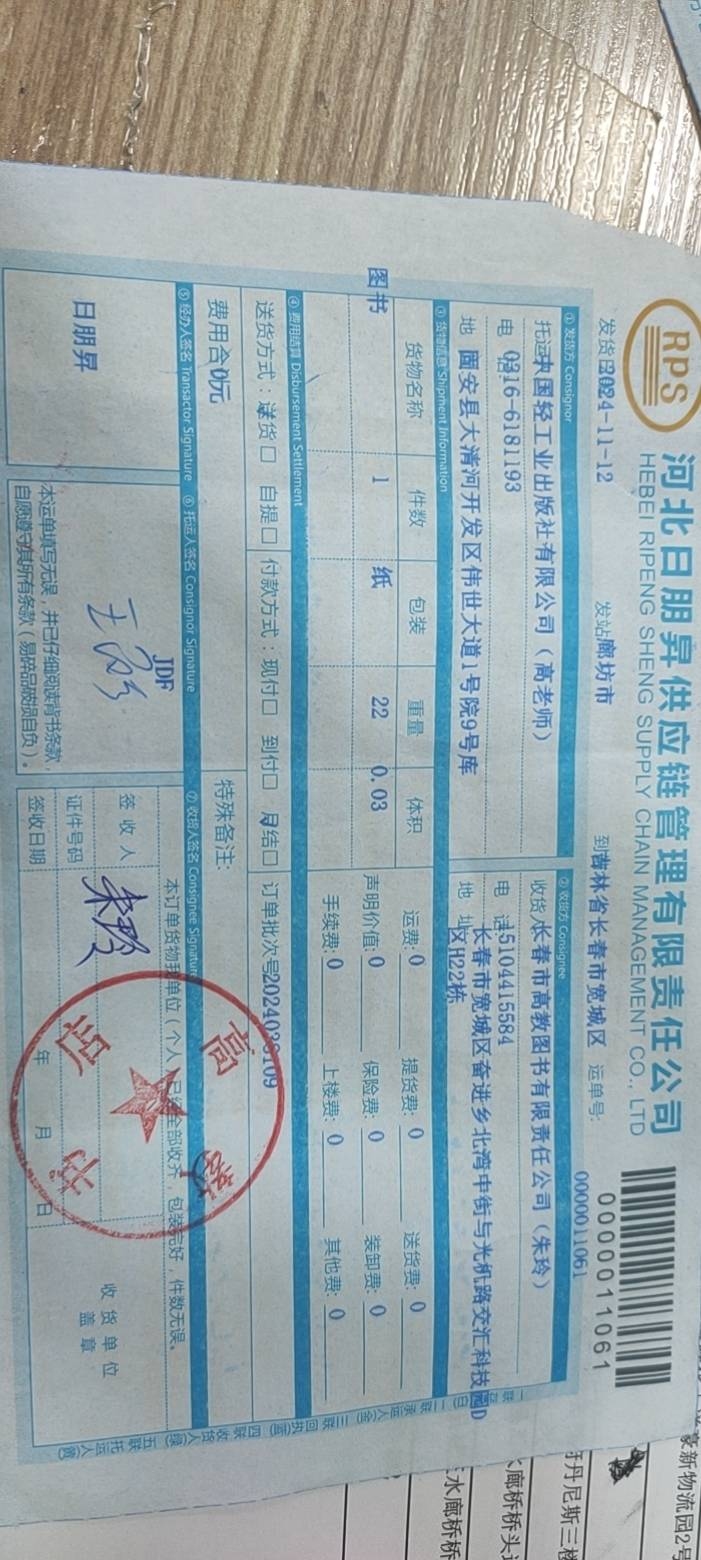 RPS
河北日朋昇供应链管理有限责任公司
HEBEI RIPENG SHENG SUPPLY CHAIN MANAGEMENT CO., LTD
0000011061
发货日 2024-11-12 发站 廊坊市 到 吉林省长春市宽城区 运单号: 0000011061
① 发货方 Consignor
托运 中国轻工业出版社有限公司（高老师）
电 0316-6181193
地 固安县大清河开发区伟世大道1号院9号库
② 收货方 Consignee
收货 长春市高教图书有限责任公司（朱玲）
电 话 15104415584
地 址 长春市宽城区奋进乡北湾中街与光机路交汇科技园D
区H22栋
③ 货物信息 Shipment Information
货物名称 件数 包装 重量 体积
图书 1 纸 22 0.03
运费: 0 提货费: 0 送货费: 0
声明价值: 0 保险费: 0 装卸费: 0
手续费: 0 上楼费: 0 其他费: 0
④ 费用结算 Disbursement Settlement
送货方式: 送货□ 自提□ 付款方式: 现付□ 到付□ 月结□ 订单批次号
费用合 0元 特殊备注:
⑤ 经办人签名 Transactor Signature
日朋昇
⑥ 托运人签名 Consignor Signature
JDF
本运单填写无误，并已仔细阅读背书条款，
自愿遵守其所有条款（易碎品破损自负）。
⑦ 收货人签名 Consignee Signature
本订单货物我单位（个人）已经全部收齐，包装完好，件数无误。
签收人 朱玲
证件号码
签收日期 年 月 日
收货单位
盖章
高教书店
一联 (白) 二联承运人(金) 三联回执(蓝) 四联收货人(绿) 五联托运人(黄)
豪新物流园2号
丹尼斯三楼
水廊桥桥头
水廊桥桥